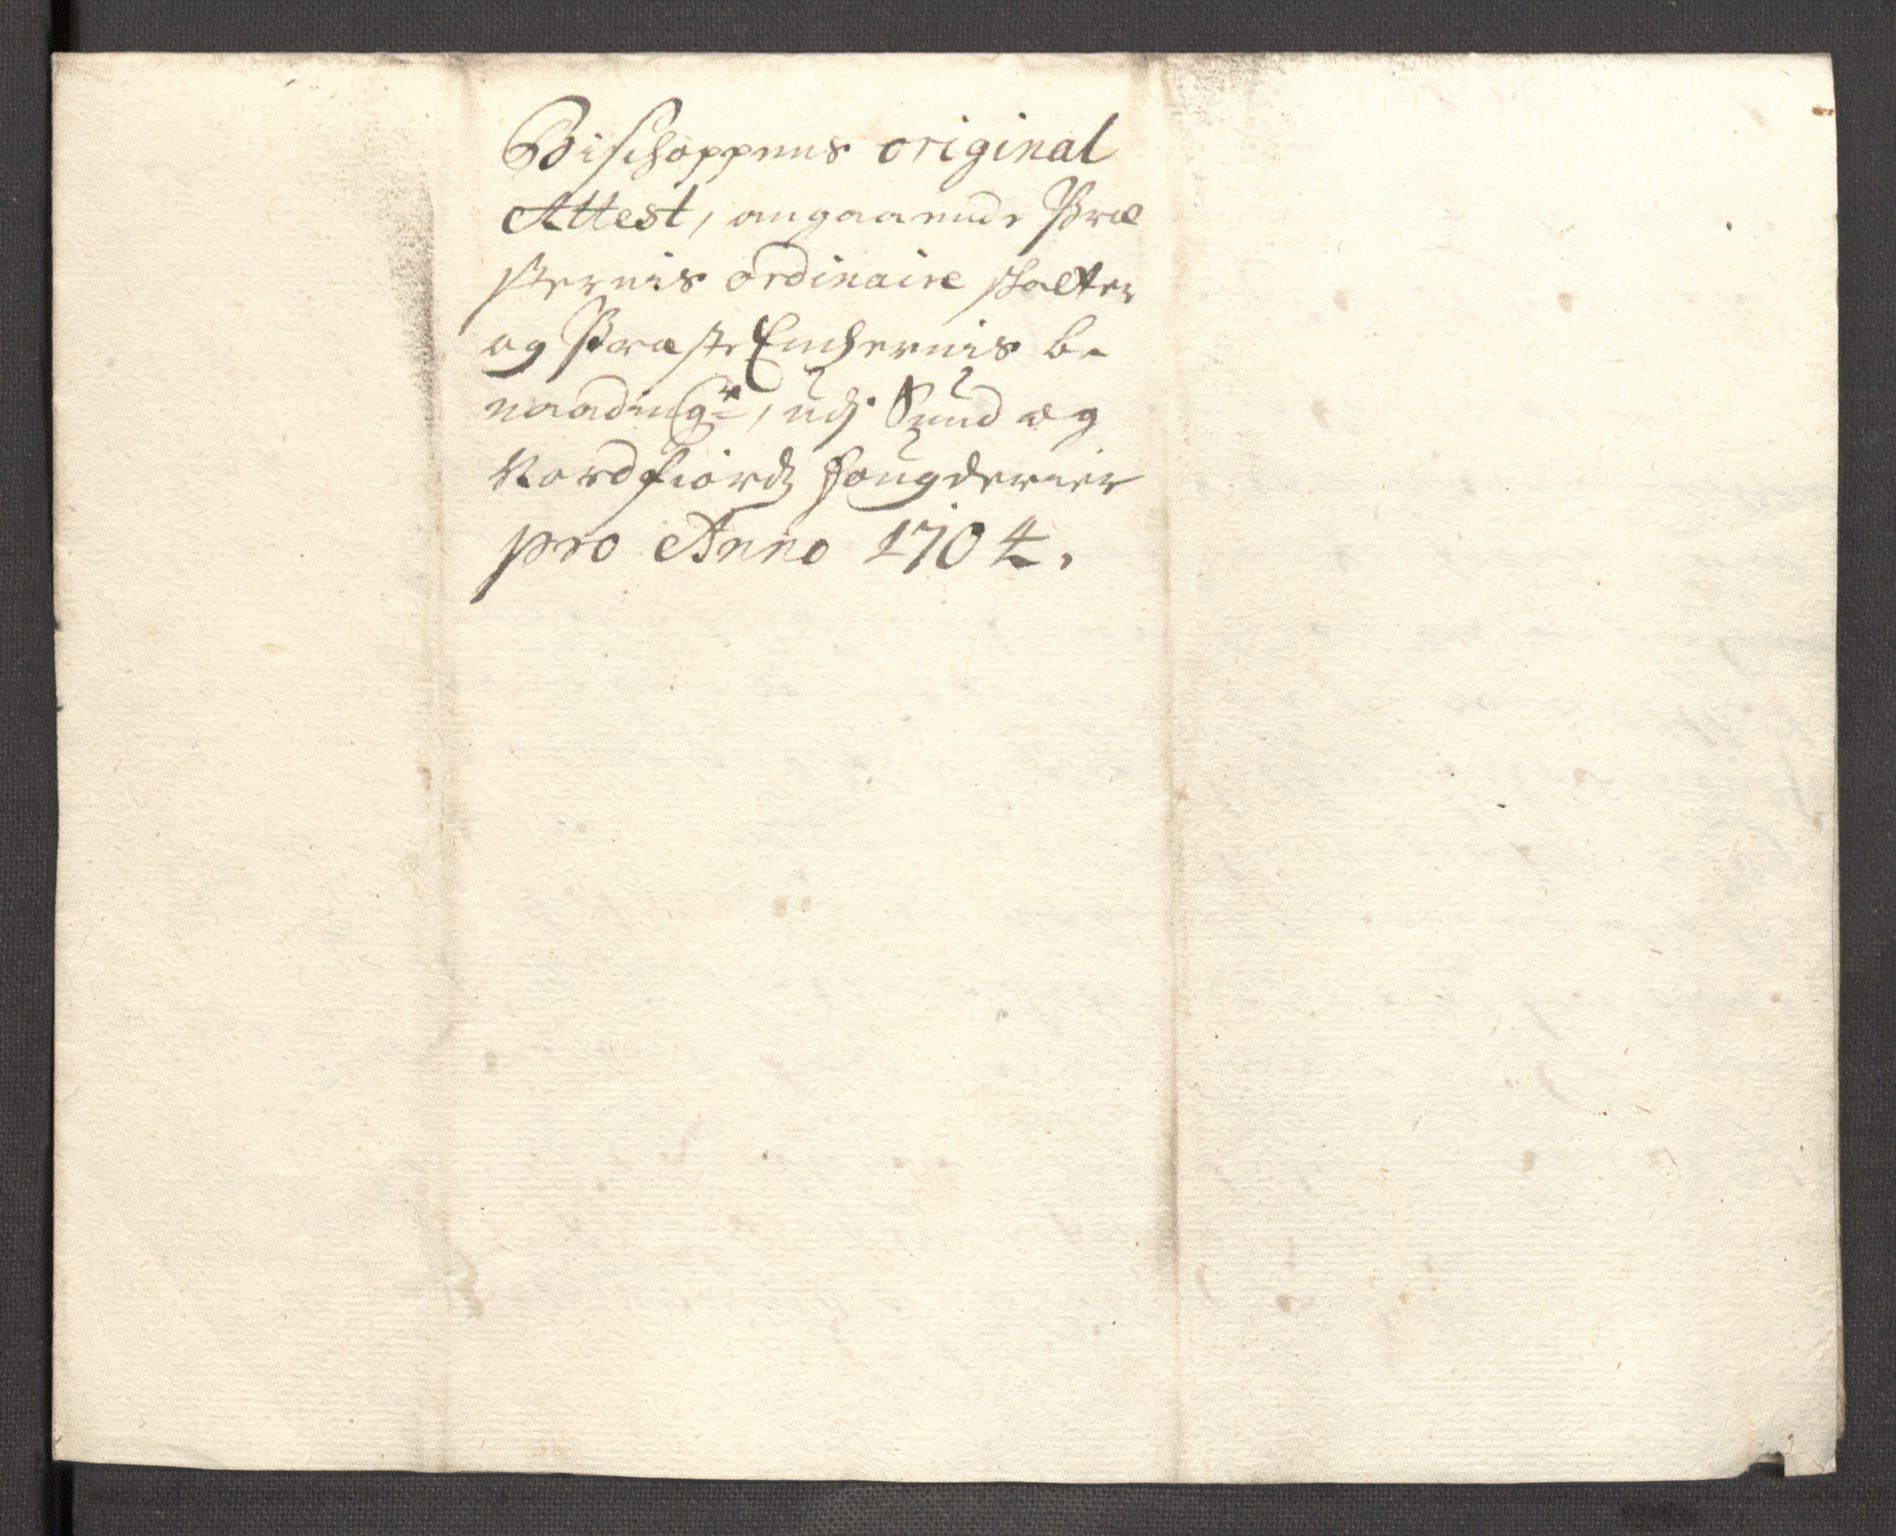 Bischoppens original
Attest, angaaende Præ
sternis ordinaire skatter
og Præste Enchernis be
naadinger, udj Sund og
Nordfiordz fougderier
pro Anno 1704.